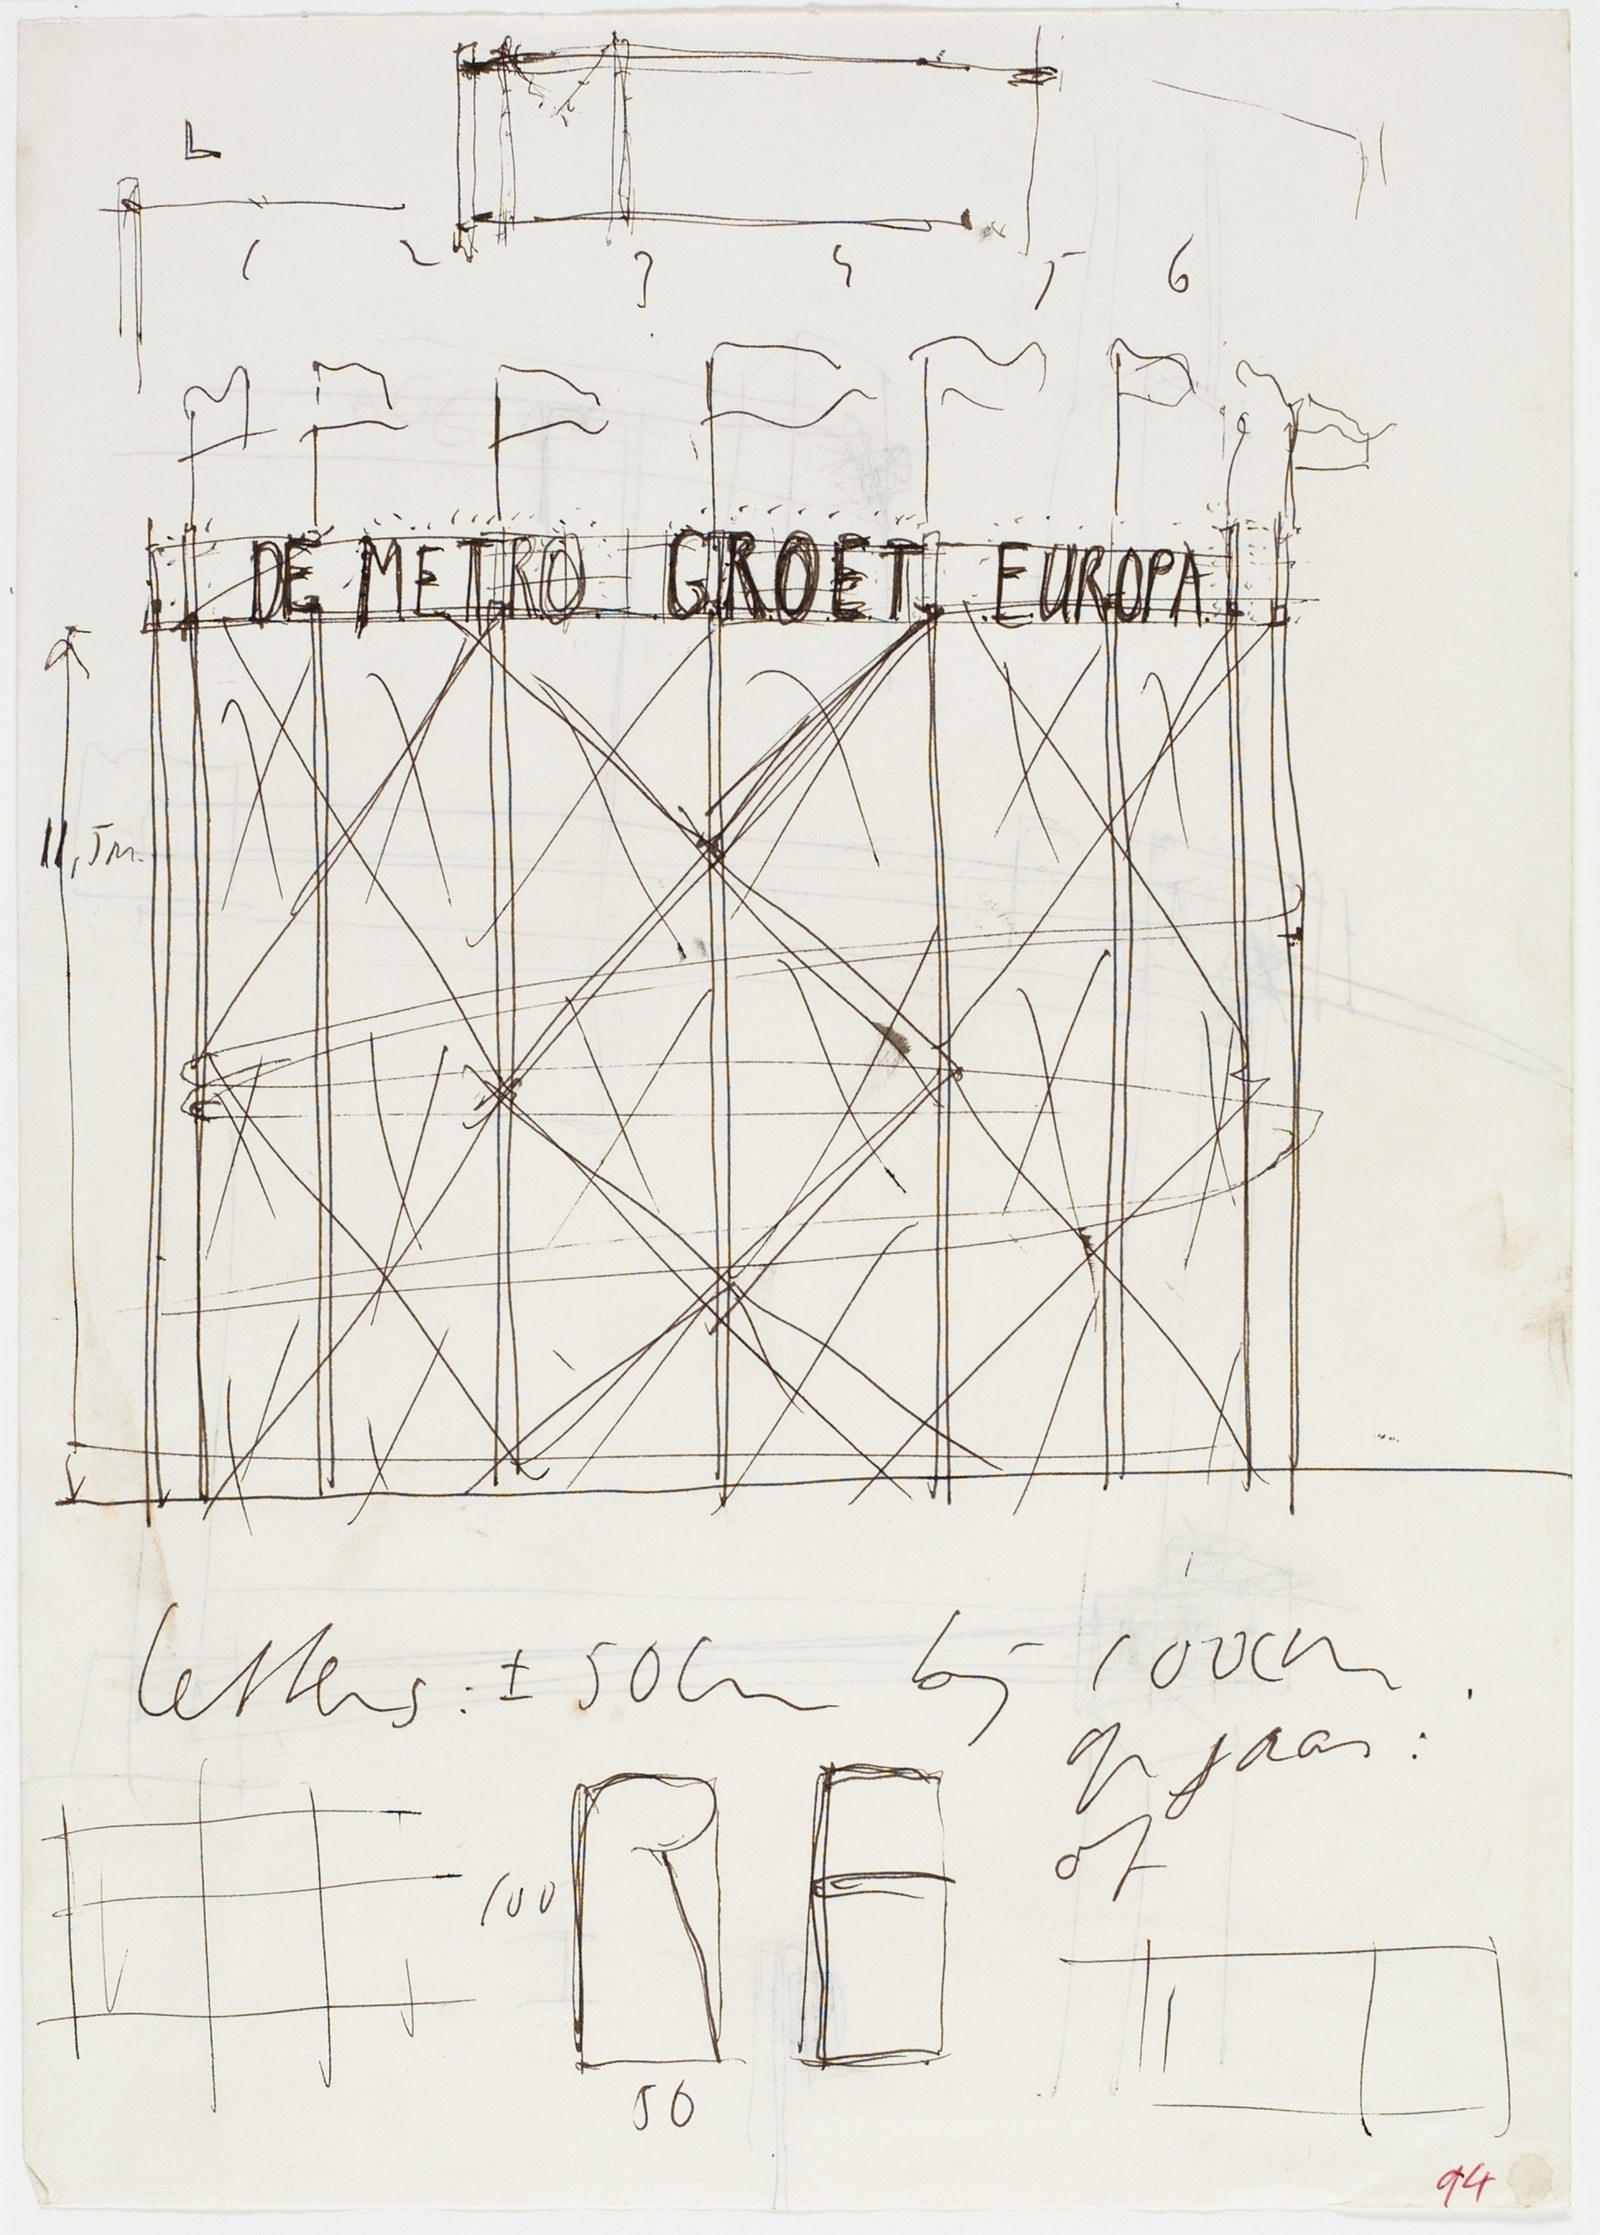 L
1 2 3 4 5 6
DE METRO GROET EUROPA
11,5m.
letters: ± 50cm bij 100cm.
op gaas:
of
100
50
94